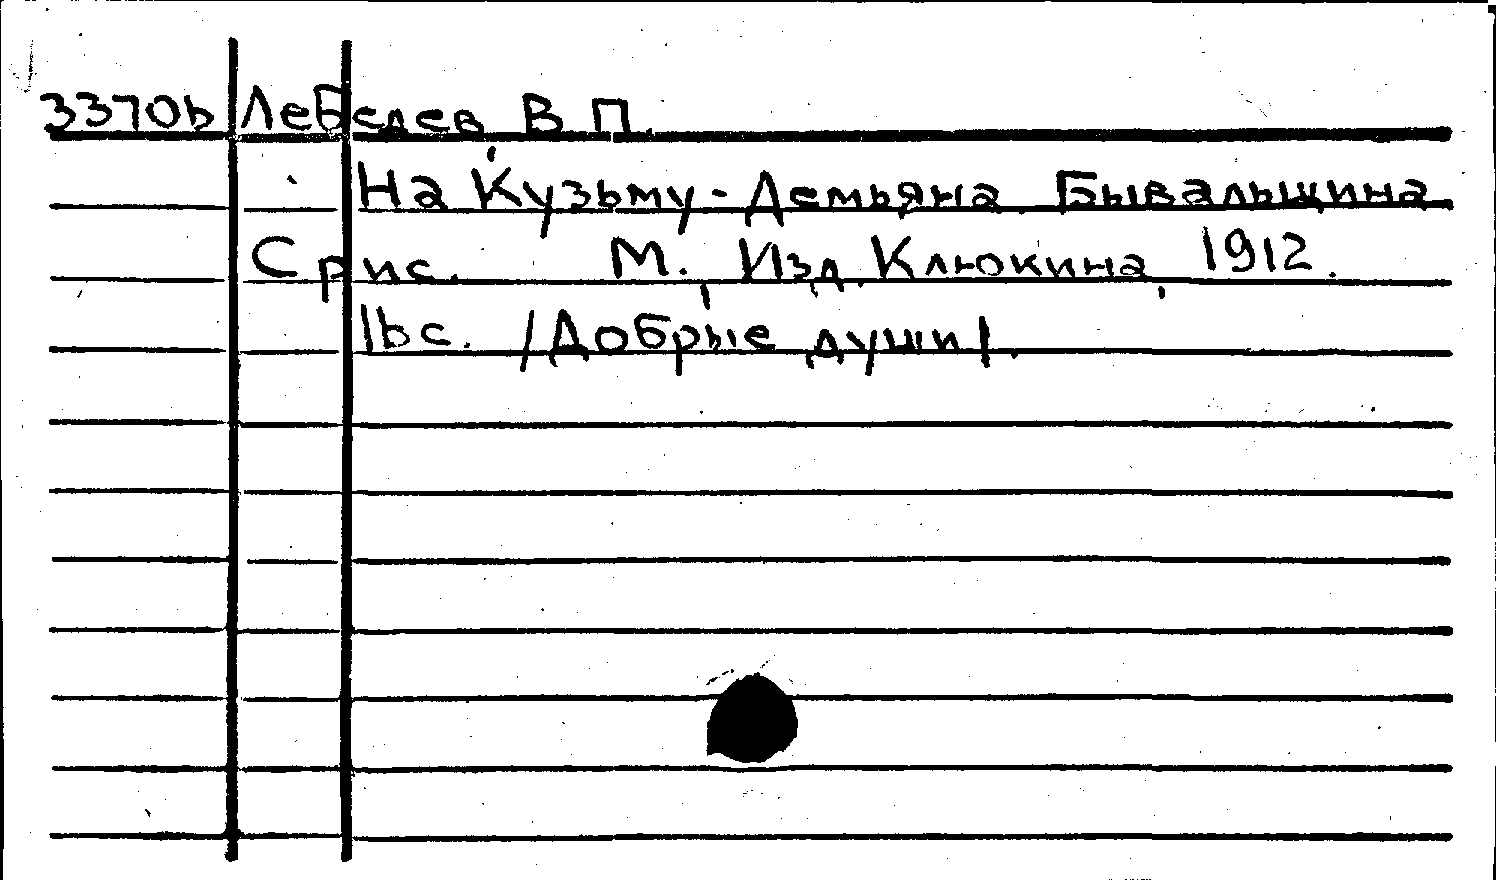 33706 Лебедев, В. П.
На Кузьму-Демьяна. Бывальщина.
С рис. М., Изд. Клюкина, 1912.
16 с. /Добрые души/.